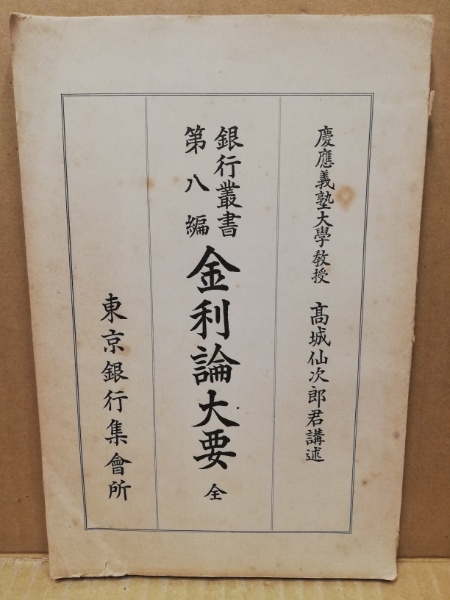 慶應義塾大學教授 髙城仙次郎君講述
銀行叢書
第八編
金利論大要 全
東京銀行集會所